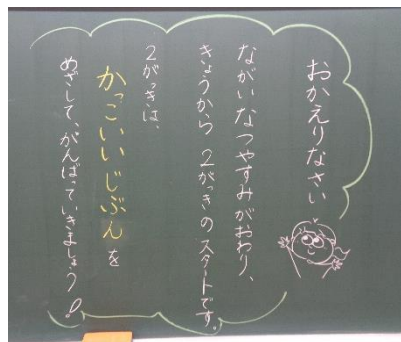 おかえりなさい
ながいなつやすみがおわり、
きょうから 2がっきのスタートです。
2がっきは、
かっこいいじぶんを
めざして、がんばっていきましょう!